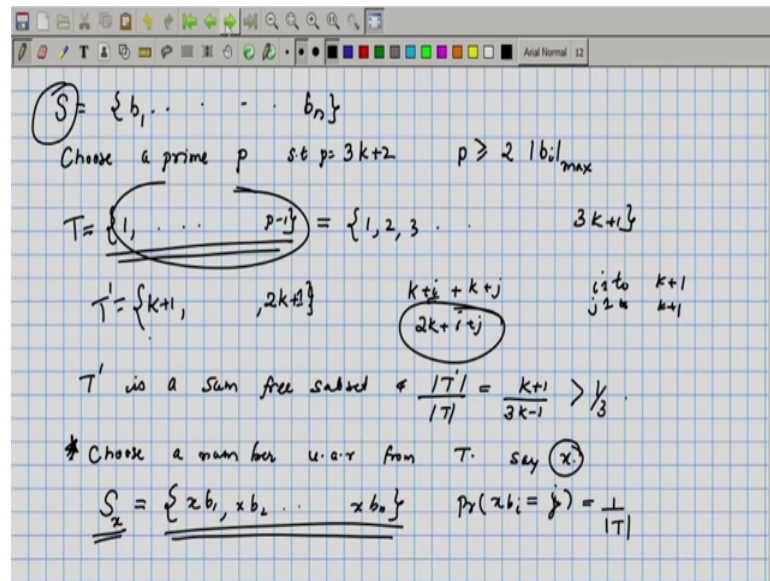 Arial Normal 12
S = {b₁ . . . . bₙ}
Choose a prime p s.t p= 3k+2 p ≥ 2 |bi|max
T= {1, . . . p-1} = {1, 2, 3 . . 3k+1}
T' = {k+1, , 2k+1} k+i + k+j i 1 to k+1
2k+ i+j j 1 k+1
T' is a sum free subset & |T'|/|T| = k+1/3k-1 > 1/3 .
* Choose a number u.a.r from T. say x.
Sₓ = {xb₁, xb₂ . . . xbₙ} Pr(xbi = j) = 1/|T|